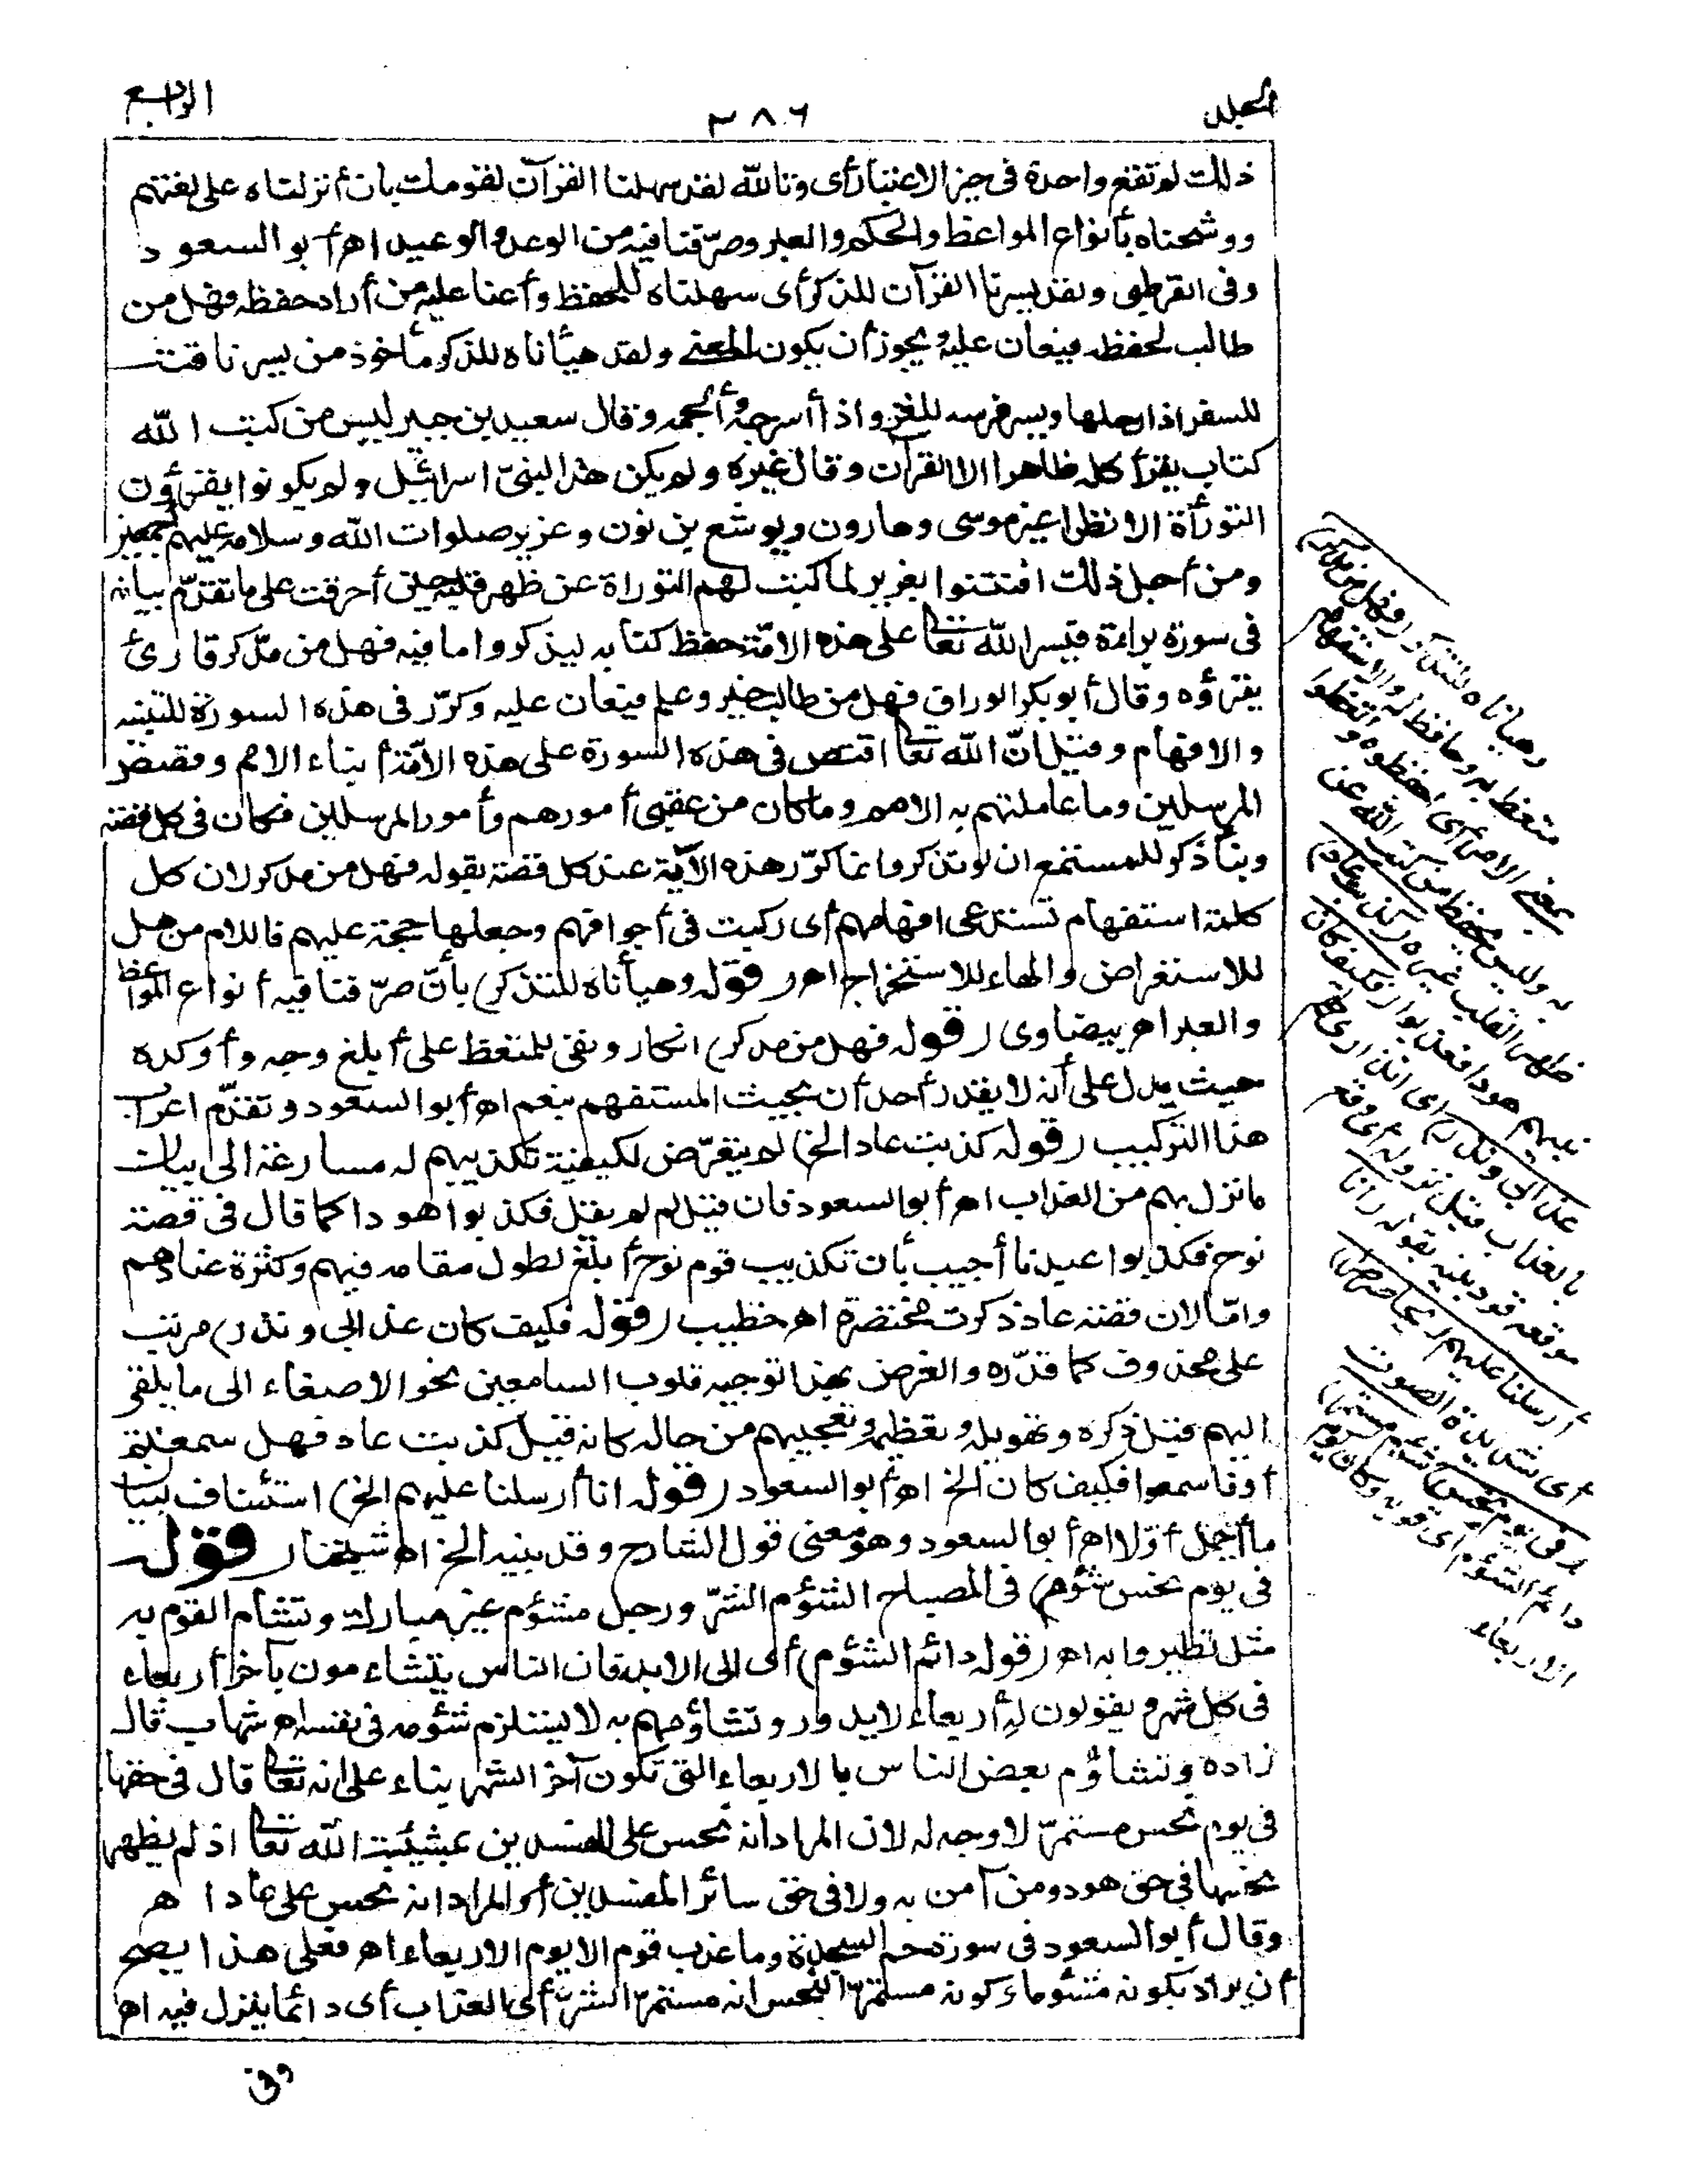 المجلد
٣٨٦
الرابع
ذلك لم تقع واحدة في حيز الاعتبار أى وتالله لقد سهلنا القرآن لقومك بان أنزلناه على لغتهم
ووشحناه بأنواع المواعظ والحكم والعبر وصرّفنا فيه من الوعد والوعيد اهـ أبو السعود
وفى القرطبى ولقد يسرنا القرآن للذكر أى سهلناه للحفظ وأعنا عليه من أراد حفظه فهل من
طالب لحفظه فيعان عليه ويجوز أن يكون المعنى ولقد هيأناه للذكر مأخوذ من يسر ناقته
للسفر اذا رحلها ويسر فرسه للغزو اذا أسرجه وألجمه وقال سعيد بن جبير ليس من كتب الله
كتاب يقرأ كله ظاهرا الا القرآن وقال غيره ولم يكن هذا لبنى اسرائيل ولم يكونوا يقرؤن
التوراة الا نظرا غير موسى وهارون ويوشع بن نون وعزير صلوات الله وسلامه عليهم أجمعين
ومن أجل ذلك افتتنوا بعزير لما كتب لهم التوراة عن ظهر قلبه حين أحرقت على ما تقدّم بيانه
فى سورة براءة فيسر الله تعالى على هذه الامّة حفظ كتابه ليذكروا ما فيه فهل من مدّكر قارئ
يقرؤه وقال أبو بكر الوراق فهل من طالب خير وعلم فيعان عليه وكرّر فى هذه السورة للتنبيه
والافهام وقيل انّ الله تعالى اقتص فى هذه السورة على هذه الأمّة أنباء الامم وقصص
المرسلين وما عاملتهم به الامم وما كان من عقبى أمورهم وأمور المرسلين فكان فى كل قصة
ونبأ ذكر للمستمع ان لو تذكر وانما كرّر هذه الآية عند كل قصة بقوله فهل من مدكر لان كل
كلمة استفهام تستدعى افهامهم أى ركبت فى أجوافهم وجعلها حجة عليهم فاللام من هل
للاستعراض والهاء للاستخراج اهـ (قوله وهيأناه للتذكر) بأن صرّفنا فيه أنواع المواعظ
والعبر اهـ بيضاوى (قوله فهل من مدكر) انكار ونفى للمتعظ على أبلغ وجه وأوكده
حيث يدل على أنه لا يقدر أحد أن يجيب المستفهم بنعم اهـ أبو السعود وتقدّم اعراب
هذا التركيب (قوله كذبت عاد الخ) لم يتعرّض لكيفية تكذيبهم له مسارعة الى بيان
ما نزل بهم من العذاب اهـ أبو السعود فان قيل لم لم يقل فكذبوا هودا كما قال فى قصة
نوح فكذبوا عبدنا أجيب بأن تكذيب قوم نوح أبلغ لطول مقامه فيهم وكثرة عنادهم
وامّا لان قصة عاد ذكرت مختصرة اهـ خطيب (قوله فكيف كان عذابى ونذر) مرتب
على محذوف كما قدّره والغرض بهذا توجيه قلوب السامعين نحو الاصغاء الى ما يلقى
اليهم قبل ذكره وتهويله وتعظيمه وتعجيبهم من حاله كانه قيل كذبت عاد فهل سمعتم
أو فاسمعوا فكيف كان الخ اهـ أبو السعود (قوله انا أرسلنا عليهم الخ) استئناف لبيان
ما أجمل أوّلا اهـ أبو السعود وهو معنى قول الشارح وقد بينه الخ اهـ شيخنا (قوله
فى يوم نحس شؤم) فى المصباح الشؤم الشرّ ورجل مشؤم غير مبارك وتشاءم القوم به
مثل تطيروا به اهـ (قوله دائم الشؤم) أى الى الابد فان الناس يتشاءمون بآخر أربعاء
فى كل شهر ويقولون له أربعاء لا يدور وتشاؤمهم به لا يستلزم شؤمه فى نفسه اهـ شهاب قال
زاده وتشاؤم بعض الناس بالاربعاء التى تكون آخر الشهر بناء على انه تعالى قال فى حقها
فى يوم نحس مستمرّ لا وجه له لان المراد أنه نحس على المفسدين بمشيئة الله تعالى اذ لم يظهر
نحسها فى حق هود ومن آمن به ولا فى حق سائر المفسدين أو المراد انه نحس على عاد اهـ
وقال أبو السعود فى سورة حم السجدة وما عذب قوم الا يوم الاربعاء اهـ فعلى هذا يصح
أن يراد بكونه مشؤما وكونه مستمرّ النحس انه مستمرّ الشرّ أى العذاب أى دائما ينزل فيه اهـ
وفى
وهيأناه للتذكر (فهل من مدكر)
متعظ به وحافظ له والاستفهام
بمعنى الامر أى احفظوه واتعظوا
به وليس يحفظ من كتب الله عن
ظهر القلب غيره (كذبت عاد)
نبيهم هودا فعذبوا (فكيف كان
عذابى ونذر) أى انذارى لهم
بالعذاب قبل نزوله أى وقع
موقعه وقد بينه بقوله (انا
أرسلنا عليهم ريحا صرصرا)
أى شديدة الصوت
(فى يوم نحس) شؤم (مستمر)
دائم الشؤم أى قويه وكان يوم
الاربعاء